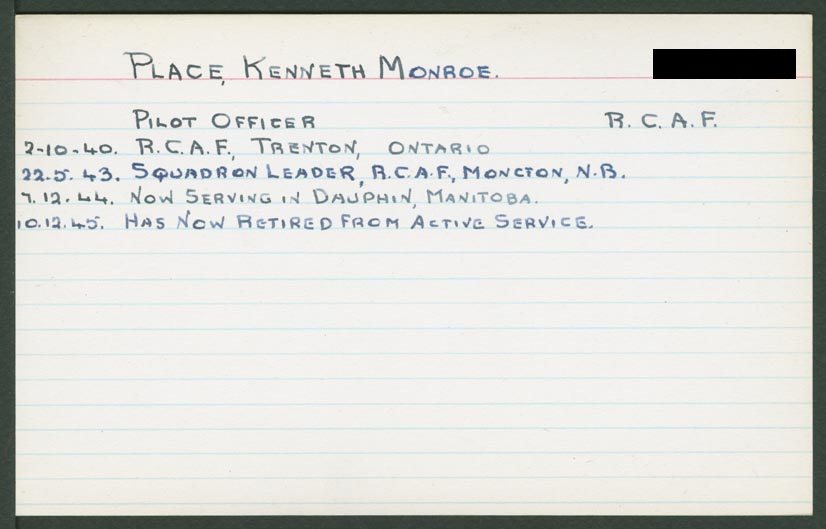 PLACE, KENNETH MONROE.
PILOT OFFICER R. C. A. F.
2-10-40. R.C.A.F., TRENTON, ONTARIO
22.5.43. SQUADRON LEADER, R.C.A.F., MONCTON, N.B.
7.12.44. NOW SERVING IN DAUPHIN, MANITOBA.
10.12.45. HAS NOW RETIRED FROM ACTIVE SERVICE.